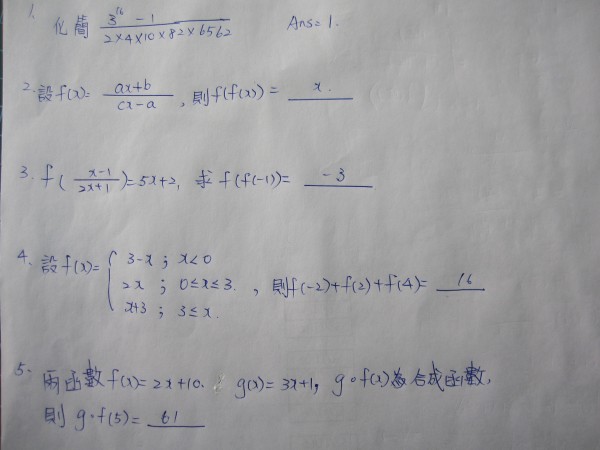 1. 化簡 (3^16 - 1)/(2×4×10×82×6562) Ans = 1.
2. 設 f(x) = (ax+b)/(cx-a), 則 f(f(x)) = x.
3. f((x-1)/(2x+1)) = 5x+2, 求 f(f(-1)) = -3
4. 設 f(x) = { 3-x ; x<0
2x ; 0≤x≤3.
x+3 ; 3≤x.
, 則 f(-2)+f(2)+f(4) = 16
5. 兩函數 f(x) = 2x+10. g(x) = 3x+1, g∘f(x) 為合成函數,
則 g∘f(5) = 61